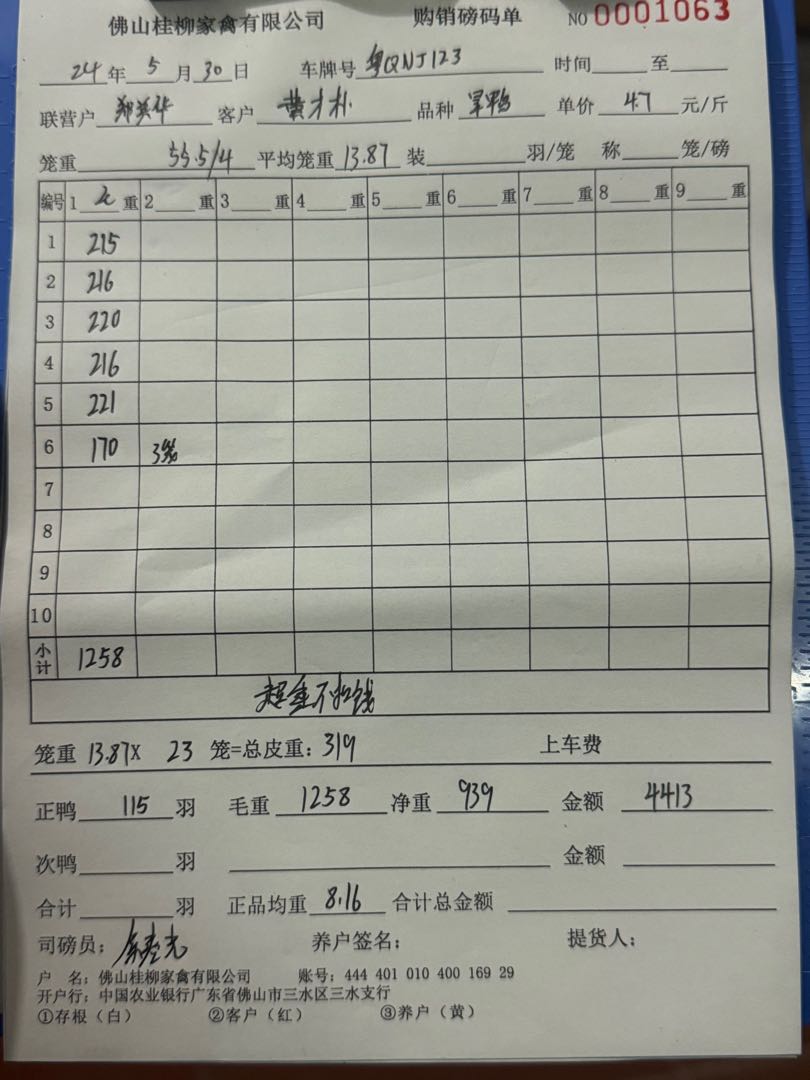 佛山桂柳家禽有限公司 购销磅码单 NO 0001063
24 年 5 月 30 日 车牌号 粤QNJ123 时间 至
联营户 郑英华 客户 黄才朴 品种 旱鸭 单价 4.7 元/斤
笼重 55.5/4 平均笼重 13.87 装 羽/笼 称 笼/磅
编号 1 毛 重 2 重 3 重 4 重 5 重 6 重 7 重 8 重 9 重
1 215
2 216
3 220
4 216
5 221
6 170 3笼
7
8
9
10
小计 1258
超重不扣钱
笼重 13.87X 23 笼=总皮重: 319 上车费
正鸭 115 羽 毛重 1258 净重 939 金额 4413
次鸭 羽 金额
合计 羽 正品均重 8.16 合计总金额
司磅员: 养户签名: 提货人:
户 名: 佛山桂柳家禽有限公司 账号: 444 401 010 400 169 29
开户行: 中国农业银行广东省佛山市三水区三水支行
①存根(白) ②客户(红) ③养户(黄)